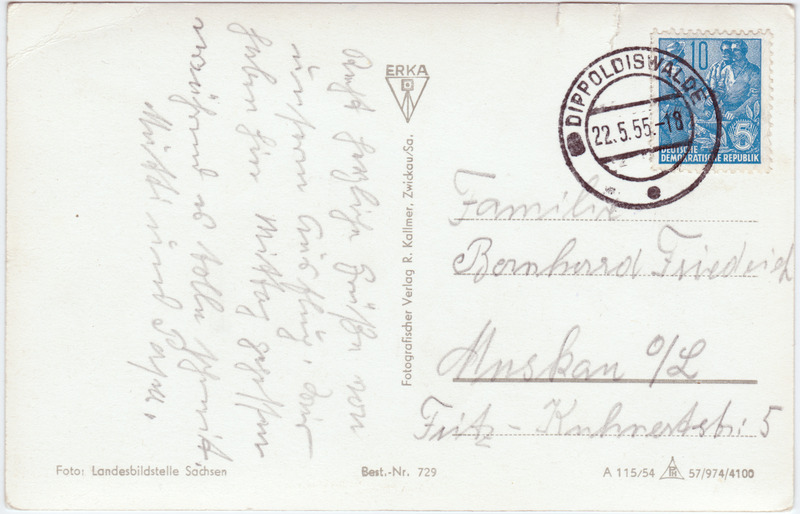 Recht herzliche Grüße von
unserm Ausflug, wir
haben hier Mittag gegessen
während es tolle schneit.
Mutti und Papa.
ERKA
Fotografischer Verlag R. Kallmer, Zwickau/Sa.
DIPPOLDISWALDE
22.5.55.-18
10
5
DEUTSCHE
DEMOKRATISCHE REPUBLIK
Familie
Bernhard Friedrich
Muskau O/L
Fritz-Kuhnertstr: 5
Foto: Landesbildstelle Sachsen
Best.-Nr. 729
A 115/54 57/974/4100